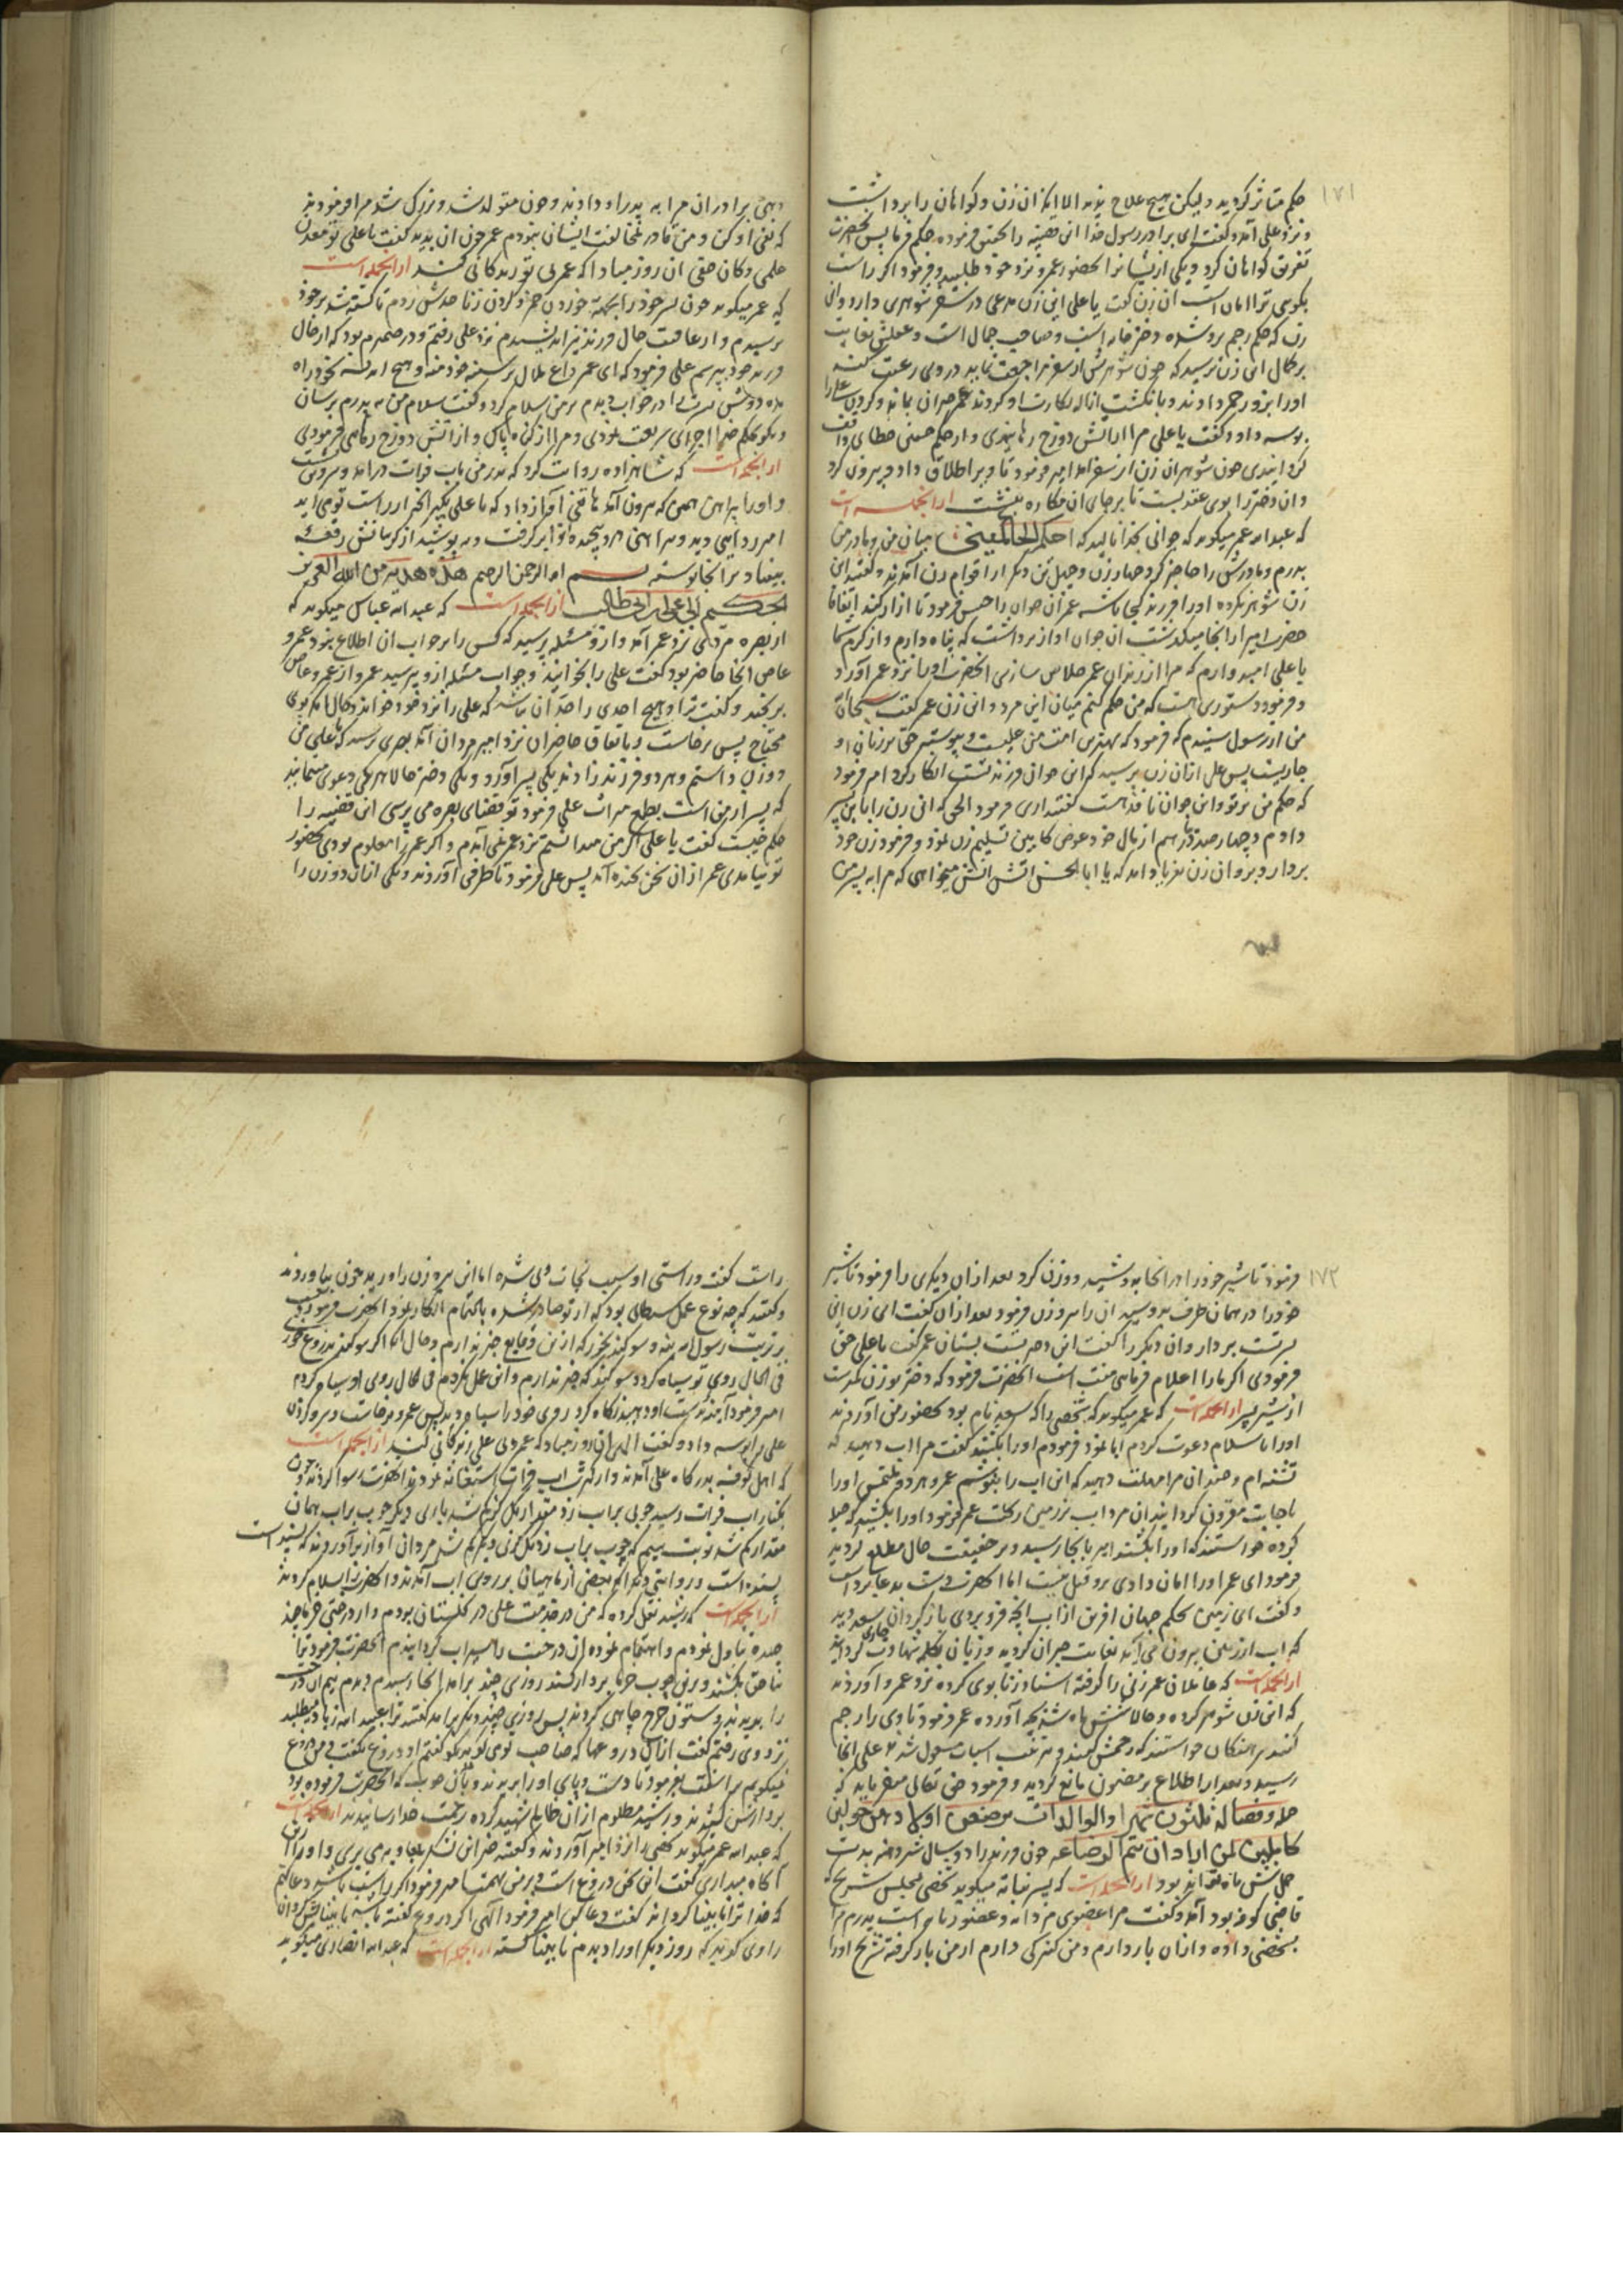 ۱۷۱
حکم متاثر گردید ولیکن هیچ علاج ندید الا انکه ان زن و کواهان را برداشت
و نزد علی آمد و گفت ای برادر رسول خدا این قضیه را حکم فرما پس انحضرت
تفریق کواهان کرد و یکی از ایشانرا بحضور عمر و نزد خود طلبید و فرمود اکر راست
بکوئی ترا امان است ان زن گفت یا علی این زن مدعی در سفر شوهری دارد و ان
زن که حکم رجم برو شده دختر خانه است و صاحب جمال است و عقلش بغایت
بر کمال این زن ترسید که چون شوهرش از سفر مراجعت نماید در وی رغبت کند
اورا بزور خمر دادند و بانکشت ازاله بکارت او کردند عمر حیران بماند و کردن علی را
بوسه داد و گفت یا علی مرا از آتش دوزخ رهانیدی و از حکم چنین خطای واقف
کردانیدی چون شوهر ان زن از سفر آمد امیر فرمود تا ویرا طلاق داد و بیرون کرد
و ان دختر را بوی عقد بست تا بر جای ان مکاره بنشست ازانجمله است
که عبدالله عمر میکوید که جوانی بخدا نالید که احکم الحاکمین میان من و مادر من
پدرم و مادرش را حاضر کرد چهار زن و چهل تن دیگر از اقوام زن آمدند و گفتند این
زن شوهر نکرده اورا فرزند کجا باشد عمر ان جوان را حبس فرمود تا ازار کنند اتفاقا
حضرت امیر از انجا میگذشت ان جوان اواز برداشت که پناه دارم و از کرم شما
یا علی امید دارم که مرا از زندان عمر خلاص سازی انحضرت اورا نزد عمر آورد
و فرمود دستوری هست که من حکم کنم میان این مرد و این زن عمر گفت سبحان الله
من از رسول شنیدم که فرمود که بهترین امت من علیست و پیوسته حق بر زبان او
جاریست پس علی ازان زن پرسید که این جوان فرزند تست انکار کرد امیر فرمود
که حکم من بر تو و این جوان نافذ هست گفتند اری فرمود الهی که این زن را باین پسر
دادم و چهارصد درهم از مال خود عوض کابین تسلیم زن نمود و فرمود زن خود
بردار و برو ان زن فریاد برآورد که یا ابا الحسن آتش آتش میخواهی که مرا به پسر من
دهی برادران مرا به پدر او دادند و چون متولد شد و بزرک شد مرا فرمودند
که نفی او کن و من قادر بمخالفت ایشان نبودم عمر چون ان بدید گفت یا علی تو معدن
علمی و کان حقی ان روز مباد که عمر بی تو زندکانی کند ازانجمله است
که عمر میکوید چون پسر خود را بجهت خوردن خمر و کردن زنا حد شش زدم تا کشته شد بر خود
ترسیدم و از عاقبت حال فرزند نیز اندیشیدم نزد علی رفتم و در ضمیرم بود که از حال
فرزند خود بپرسم علی فرمود که ای عمر داغ ملال بر سینه خود منه و هیچ اندیشه بخود راه
مده دوش پسرت را در خواب دیدم بر من سلام کرد و گفت سلام من به پدرم برسان
و بکو بحکم خدا اجرای شریعت نمودی و مرا از کناه پاک و از آتش دوزخ رهائی فرمودی
ازانجمله است که شاهزاده روایت کرد که پدر من باب فرات درآمد و سر و تن شست
و اورا پیراهن همین که بیرون آمد هاتفی آواز داد که یا علی بگیر انچه از راست تو می اید
امیر ردایی دید و پیراهنی در و پیچیده انرا بر گرفت و بپوشید از کریبانش رقعه
بیفتاد برانجا نوشته بسم الله الرحمن الرحیم هذه هدیة من الله العزیز
الحکیم الی علی ابن ابی طالب ازانجمله است که عبدالله عباس میکوید که
از بصره مردی نزد عمر آمد و از و مسئله پرسید که کس را بر جواب ان اطلاع نبود عمرو
عاص انجا حاضر بود گفت علی را بخوانید و جواب مسئله ازو بپرسید عمر از عمرو عاص
برنجید و گفت ترا و هیچ احدی را حد ان نباشد که علی را نزد خود خواند و حال انکه بوی
محتاج پس برخاست و باتفاق حاضران نزد امیر مردان آمد بصری پرسید که یا علی من
دو زن داشتم و هر دو فرزند زادند یکی پسر آورد و یکی دختر حالا هر یکی دعوی مینمایند
که پسر از من است بطمع میراث علی فرمود تو قضای بصره می پرسی این قضیه را
حکم چیست گفت یا علی اکر من میدانستم نزد عمر نمی آمدم و اکر عمر را معلوم بودی بحضور
تو نیامدی عمر ازان سخن بخنده آمد پس علی فرمود تا ظرفی آوردند و یکی ازان دو زن را
۱۷۲
فرمود تا شیر خود را در انجا بدوشید و وزن کرد بعد ازان دیکری را فرمود تا شیر
خود را در همان ظرف بدوشید ان را نیز وزن فرمود بعد ازان گفت ای زن این
پسرتست بردار و ان دیکر را گفت این دختر تست بستان عمر گفت یا علی حق
فرمودی اکر مارا اعلام فرمائی منت است انحضرت فرمود که دختر بوزن کمترست
از شیر پسر ازانجمله است که عمر میکوید که شخصی را که سعید نام بود بحضور من آوردند
اورا باسلام دعوت کردم ابا نمود فرمودم اورا بکشند گفت مرا اب دهید که
تشنه ام و چندان مرا مهلت دهید که این اب را بنوشم عمر و هر دو ملتمس اورا
باجابت مقرون کردانید ان مرد اب بر زمین ریخت عمر فرمود اورا بکشید که حیله
کرده خواستند که اورا بکشند امیر بانجا رسید و بر حقیقت حال مطلع کردید
فرمود ای عمر اورا امان دادی بر و قتل نیست اما انحضرت دست بدعا برداشت
و گفت ای زمین بحکم جهان افرین ازاب انچه فرو بردی باز کردان سعید دید
که اب از زمین بیرون می آید بغایت حیران کردید و زبان بکلمه شهادت جاری کردانید
ازانجمله است که عاملان عمر زنی را گرفته اسناد زنا بوی کرده نزد عمر آوردند
که این زن شوهر کرده و حالا شش ماه شد بچه آورده عمر فرمود تا وی را رجم
کنند سرهنکان خواستند که رجمش کنند و بترتیب اسباب مشغول شدند علی انجا
رسید و بعد از اطلاع بر مضمون مانع کردید و فرمود حق تعالی میفرماید که
حمله و فصاله ثلثون شهرا والوالدات یرضعن اولادهن حولین
کاملین لمن اراد ان یتم الرضاعة چون فرزند را دو سال شیر دهند مدت
حمل شش ماه تواند بود ازانجمله است که پسر نباته میکوید شخصی بمجلس شریح که
قاضی کوفه بود آمد و گفت مرا عضوی مردانه و عضو زنانه است پدرم مرا
بشخصی داده و ازان بار دارم و من کنیزکی دارم از من بار گرفته شریح اورا
راست گفت و راستی او سبب نجات وی شد اما این پیر زن را و ریدچون بیاوردند
و گفتند که چه نوع عمل شیطانی بود که از تو صادر شده باهتمام انکار نمود انحضرت فرمود
بر تربت رسول الله بنه و سوکند بخور که ازین وقایع خبر ندارم و حال انکه اکر سوکند بدروغ خوری
فی الحال روی تو سیاه کردد سوکند که خبر ندارم و این عمل نکردم فی الحال روی او سیاه کردم
امیر فرمود آینه بدست او دهید نکاه کرد روی خود را سیاه دید پس عمر برخاست و سر و کردن
علی را بوسه داد و گفت الهی ان روز مباد که عمر بی علی زندکانی کند ازانجمله است
که اهل کوفه بدرکاه علی آمدند و از کثرت اب فرات استغاثه نمودند انحضرت سوار کردید چون
بکنار اب فرات رسید چوبی بر اب زد مقدار یک کز کم شد باری دیکر چوب بر اب همان
مقدار کم شد نوبت سیم که چوب بر اب زد یک کز دیکر کم شد مردان آواز برآوردند که بسنده است
بسنده است و روایتی دیکر انکه بعضی از ماهیان بر روی اب آمدند و انحضرت را سلام کردند
ازانجمله است که رشید نقل کرده که من در خدمت علی در نخلستان بودم و از درختی خرما چند
تناول نمودم و اهتمام نموده ان درخت را سیراب کردانیدم انحضرت فرمود ترا
بناحق بکشند و برین چوب خرما بردار کنند روزی چند برامد انجا رسیدم دیدم نیم ان درخت
را بریدند و ستون چرخ چاهی کردند پس روزی چند دیکر برامد گفتند ترا عبیدالله زیاد میطلبد
نزد وی رفتم گفت ازان دروغها که صاحب توی کوید بکو گفتم او دروغ نگفت و من دروغ
نمیکویم بر اشفت بفرمود تا دست و پای اورا بریدند و بدان چوب که انحضرت فرموده بود
بردارش کشیدند و رشید مظلوم ازان ظالم شهید کرده برحمت خدا رسانیدند ازانجمله است
که عبدالله عمر میکوید کسی را نزد امیر آوردند و گفتند خبر این لشکر بمعاویه می بری و اورا ازین
آکاه میداری گفت این سخن دروغ است و بر من تهمت امیر فرمود اکر راست باشد دعا کنم
که خدا ترا نابینا کرداند گفت دعا کن امیر فرمود الهی اکر دروغ گفته باشد نابیناش کردان
راوی کوید که روز دیکر اورا دیدم نابینا کشته ازانجمله است که عبدالله انصاری میکوید